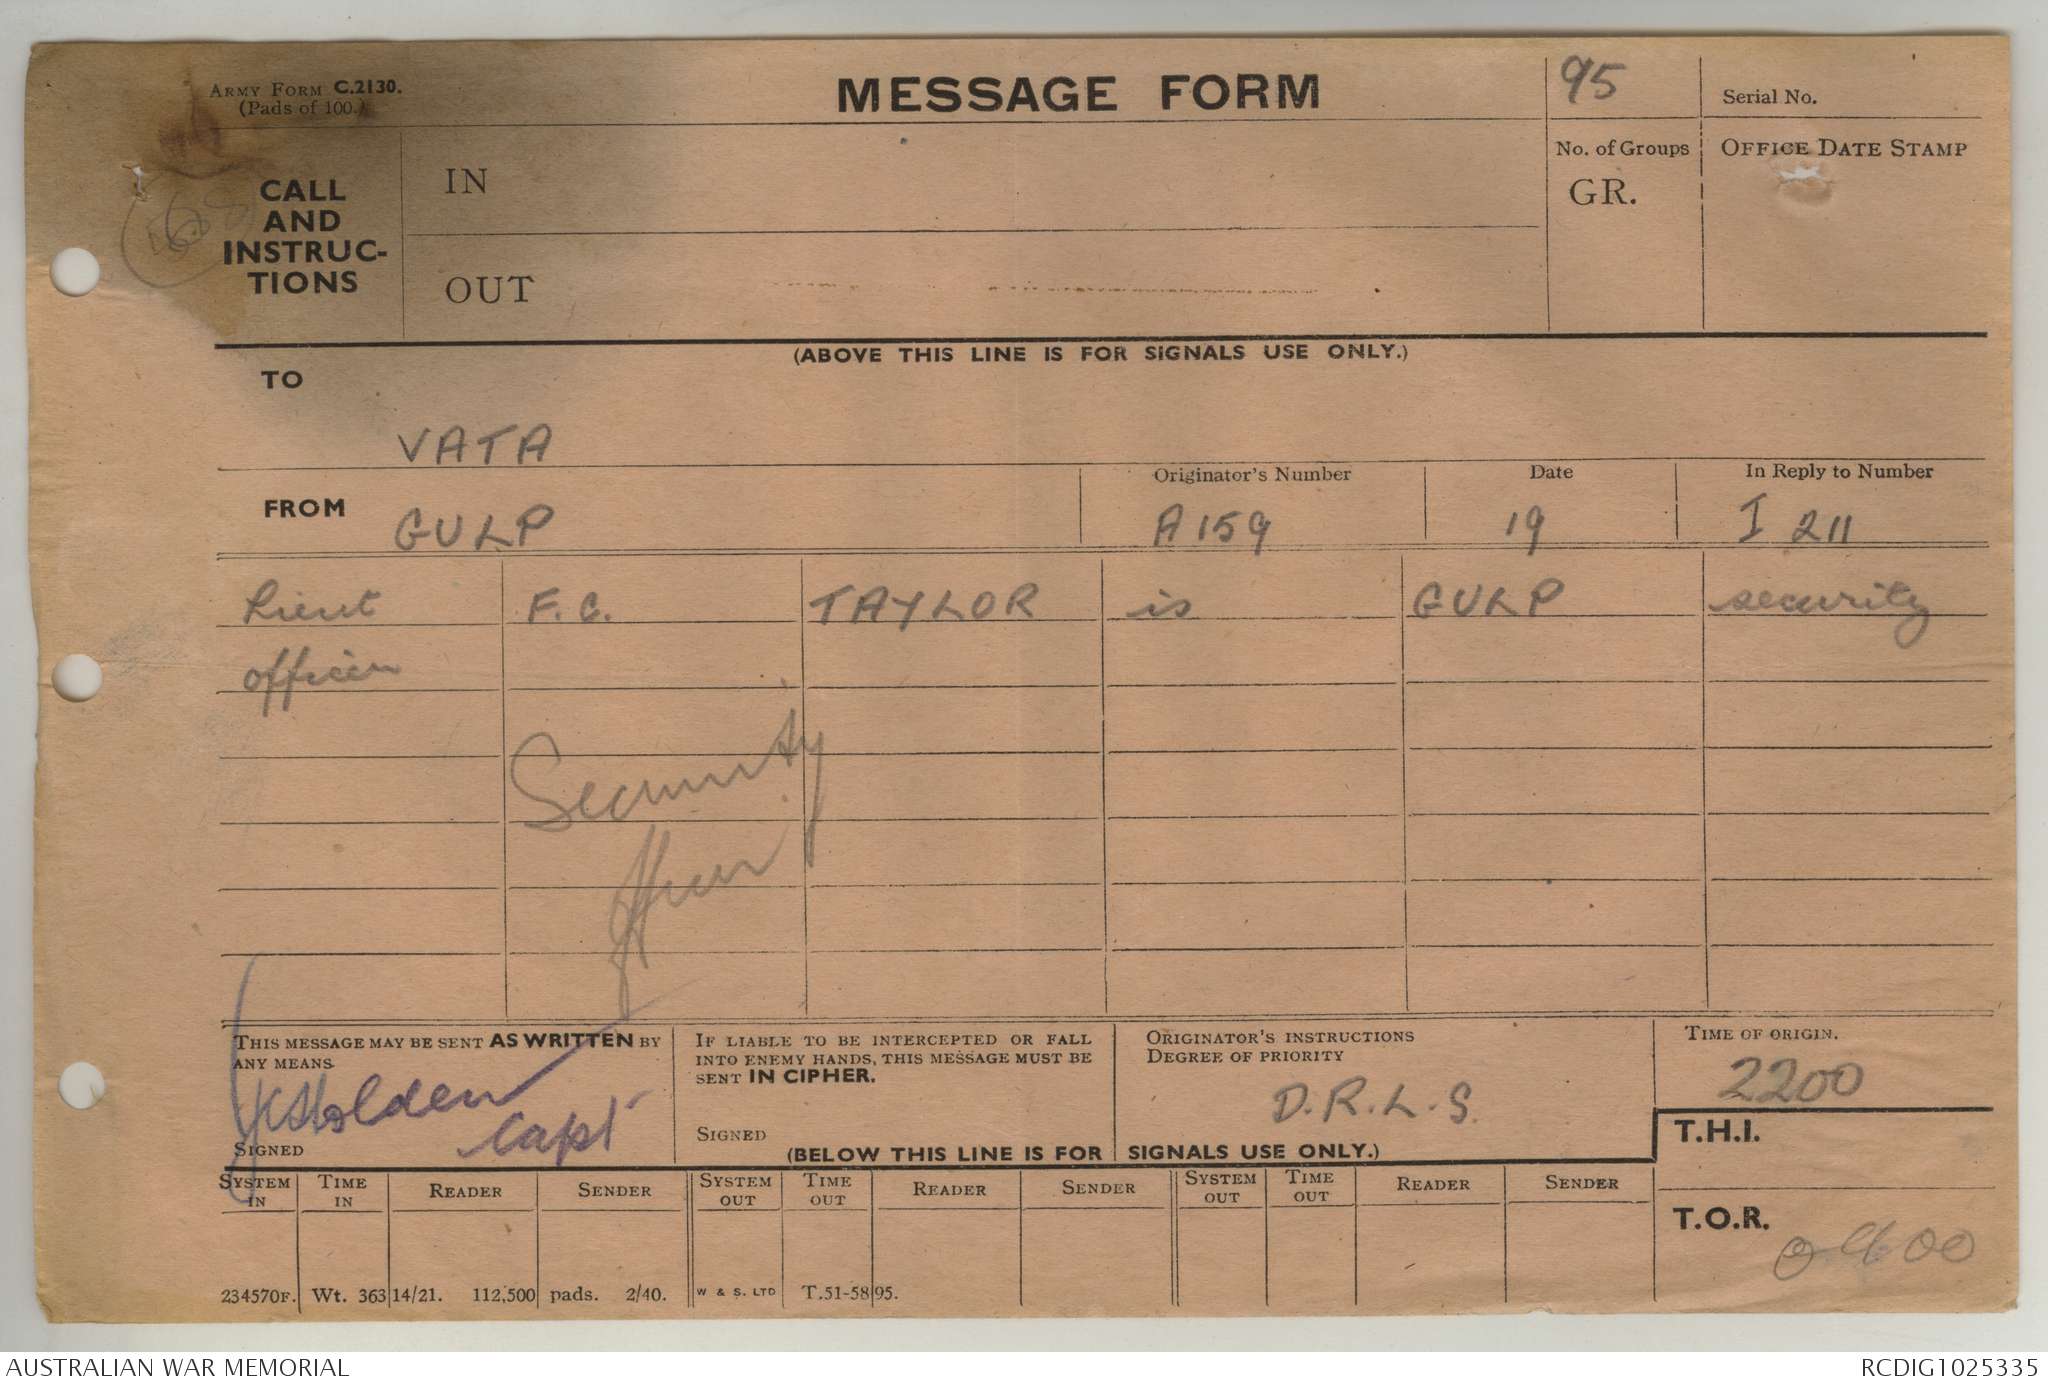 ARMY FORM C.2130.
(Pads of 100.)
MESSAGE FORM
95
Serial No.
CALL
AND
INSTRUC-
TIONS
IN
OUT
No. of Groups
GR.
OFFICE DATE STAMP
(ABOVE THIS LINE IS FOR SIGNALS USE ONLY.)
TO
VATA
FROM
GULP
Originator's Number
A 159
Date
19
In Reply to Number
I 211
Lieut F.C. TAYLOR is GULP security
officer
Security
officer
THIS MESSAGE MAY BE SENT AS WRITTEN BY
ANY MEANS.
Holden
Capt
SIGNED
IF LIABLE TO BE INTERCEPTED OR FALL
INTO ENEMY HANDS, THIS MESSAGE MUST BE
SENT IN CIPHER.
SIGNED
ORIGINATOR'S INSTRUCTIONS
DEGREE OF PRIORITY
D.R.L.S.
TIME OF ORIGIN.
2200
(BELOW THIS LINE IS FOR SIGNALS USE ONLY.)
T.H.I.
SYSTEM IN TIME IN READER SENDER SYSTEM OUT TIME OUT READER SENDER SYSTEM OUT TIME OUT READER SENDER
T.O.R.
0900
234570F. Wt. 36314/21. 112,500 pads. 2/40. W & S. LTD T.51-5895.
AUSTRALIAN WAR MEMORIAL
RCDIG1025335